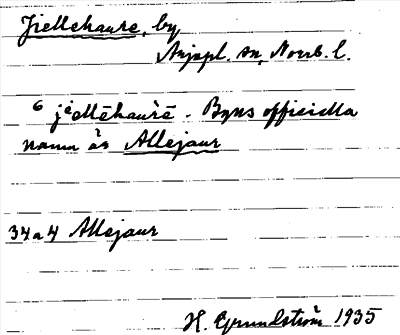 Jiellehaure, by
Arjepl. sn, Norrb. l.
6 jiellēhaùrē. Byns officiella
namn är Allejaur
34a4 Allejaur
H. Grundström 1935